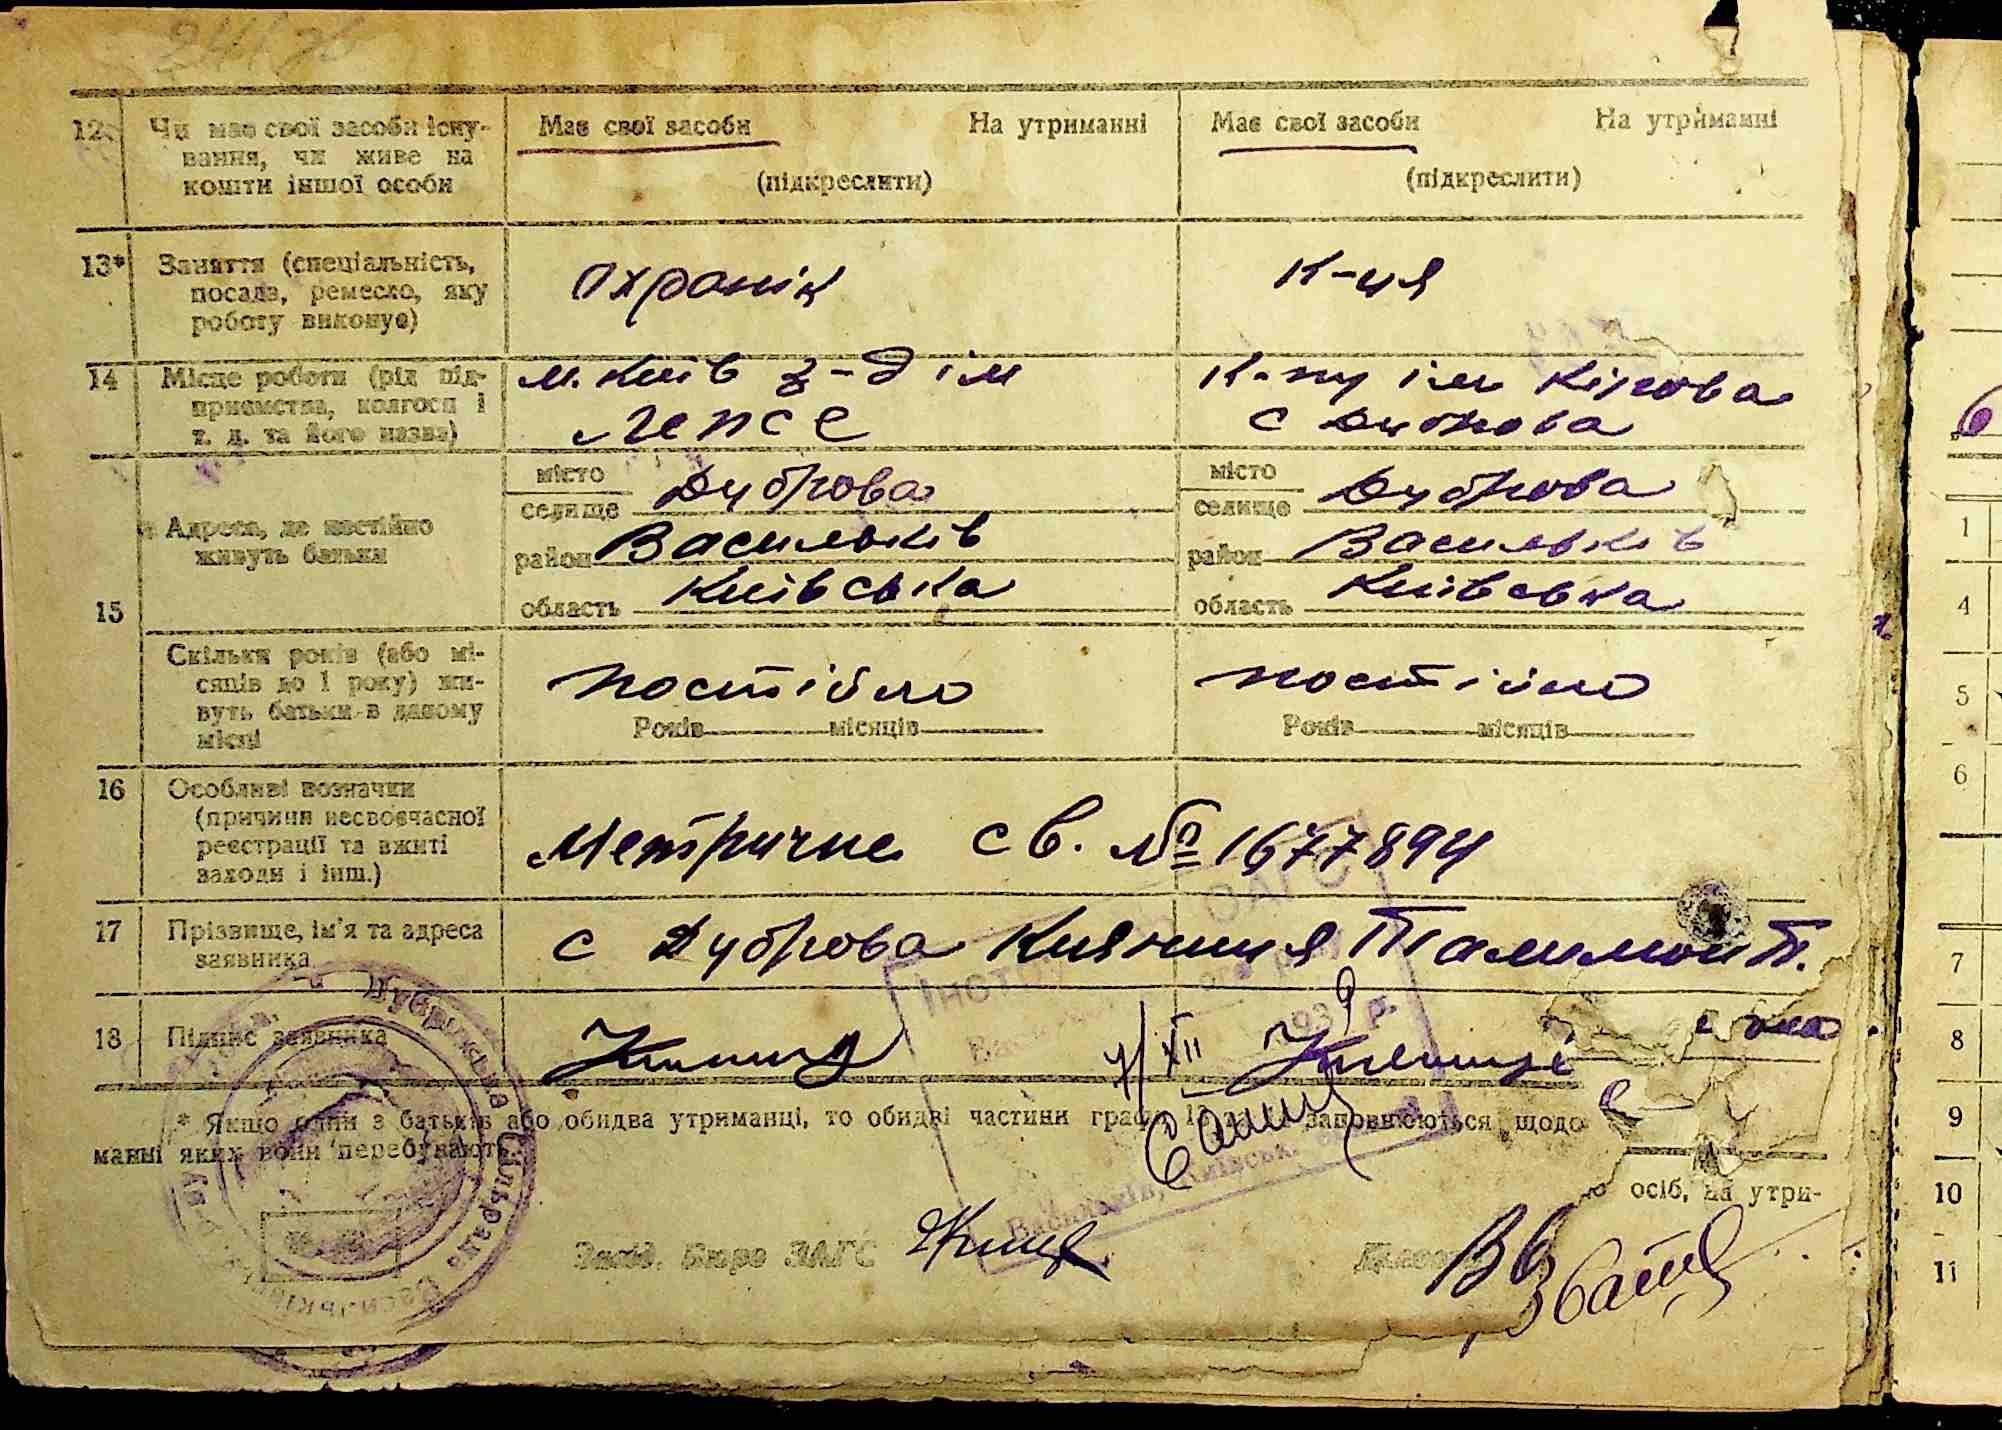 12 Чи має свої засоби існу- Має свої засоби На утриманні Має свої засоби На утриманні
вання, чи живе на
кошти іншої особи (підкреслити) (підкреслити)
13* Заняття (спеціальність,
посада, ремесло, яку охранік к-ця
роботу виконує)
14 Місце роботи (рід під- м. Київ з-д ім к-пу ім Кірова
приємства, колгосп і Лепсе с Дуброва
т. д. та його назва)
місто Дуброва місто Дуброва
селище селище
15 Адреса, де постійно район Васильків район Васильків
живуть батьки область Київська область Київська
Скільки років (або мі-
сяців до 1 року) жи- постійно постійно
вуть батьки в даному Років місяців Років місяців
місці
16 Особливі позначки
(причини несвоєчасної
реєстрації та вжиті Метричне св. № 1677894
заходи і інш.)
17 Прізвище, ім'я та адреса с Дуброва
заявника
18 Підпис заявника
4/XII
1939 р.
* Якщо один з батьків або обидва утриманці, то обидві частини заповнюються щодо
осіб, на утри-
манні яких вони перебувають.
Завід. Бюро ЗАГС
1
4
5
6
7
8
9
10
11